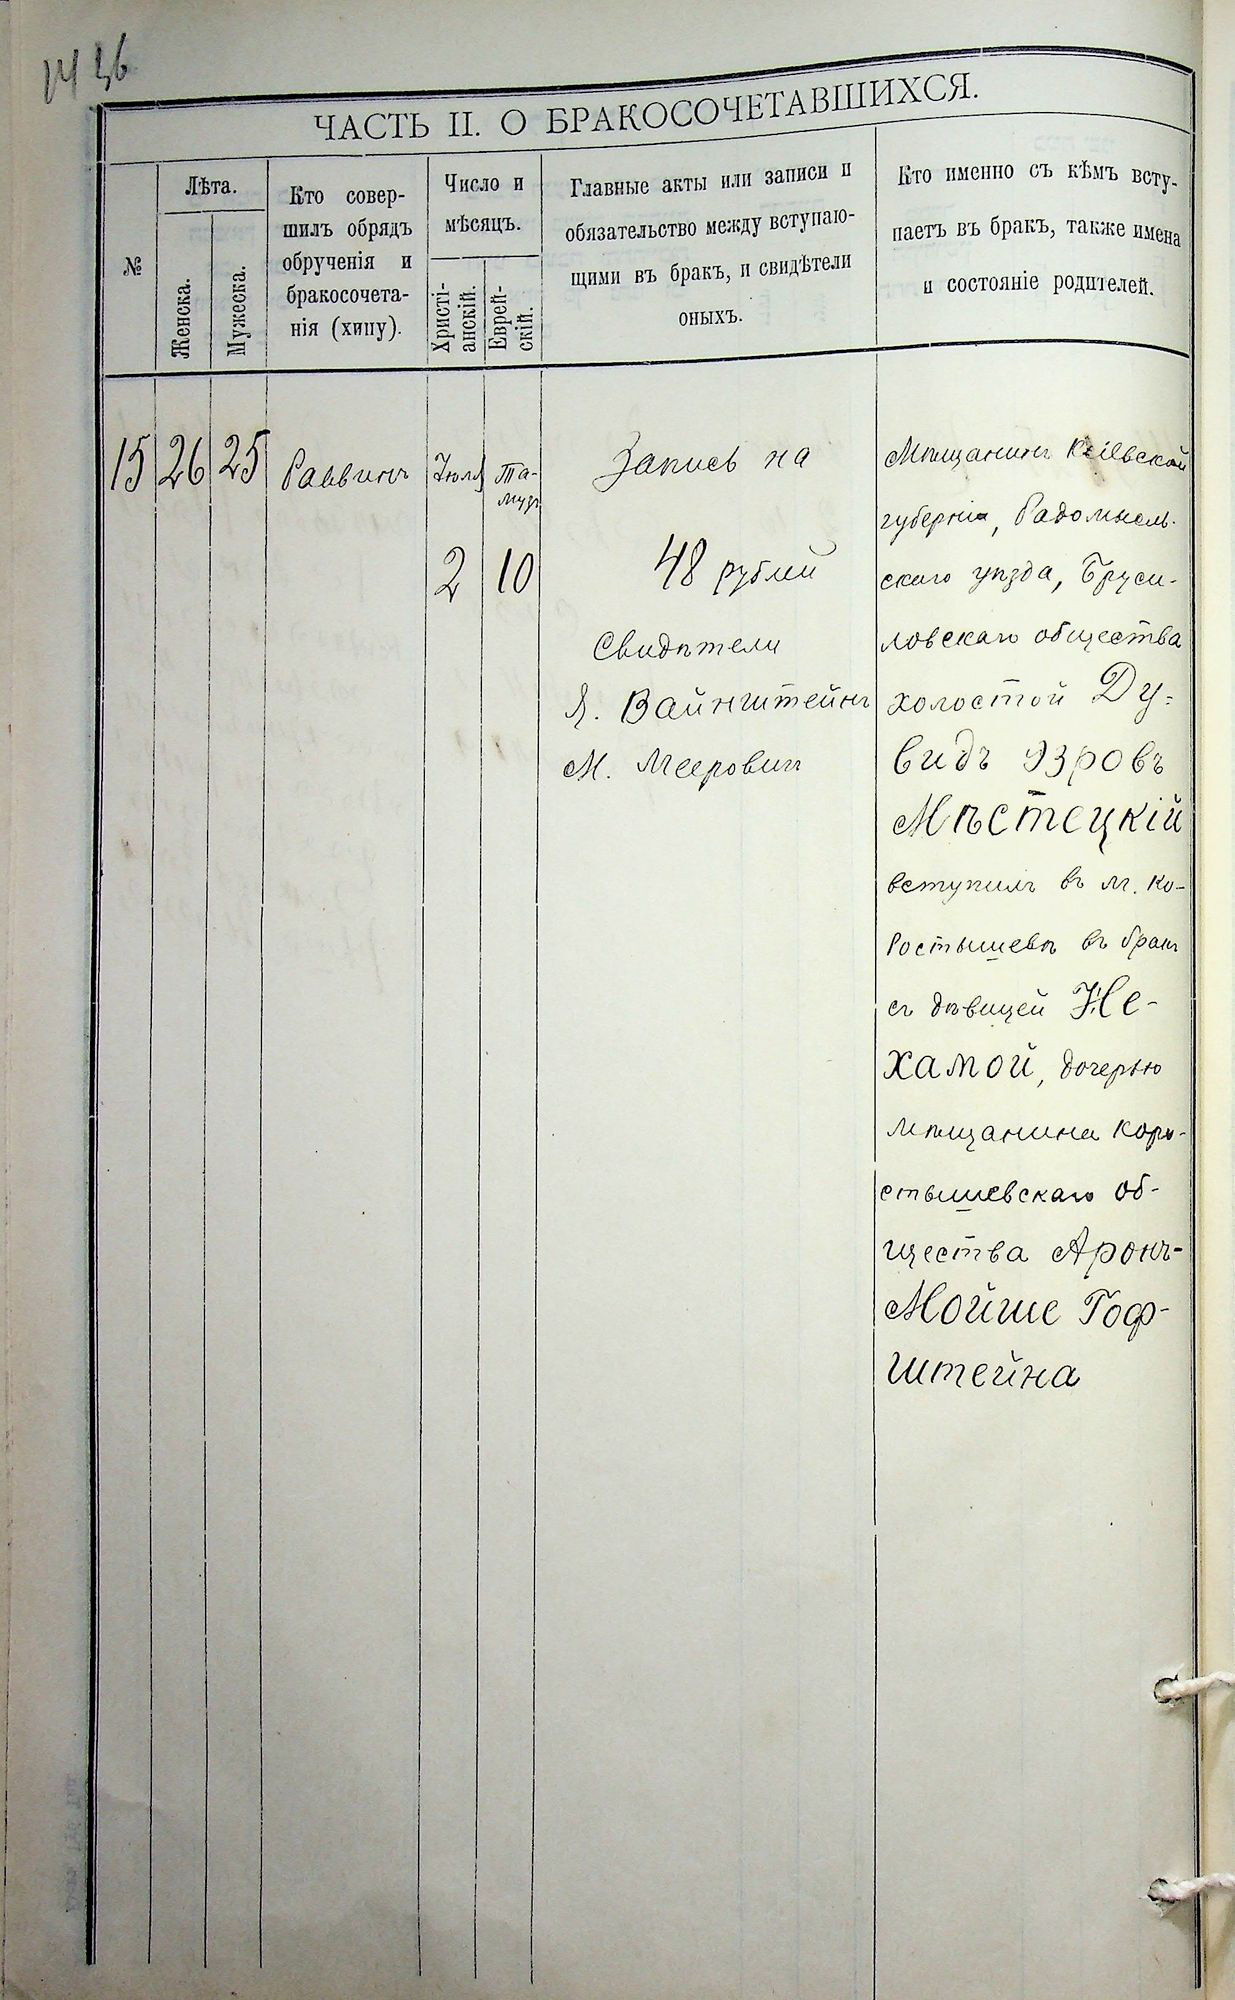 36
ЧАСТЬ II. О БРАКОСОЧЕТАВШИХСЯ.
№
Лѣта.
Женска.
Мужеска.
Кто совер-
шилъ обрядъ
обрученія и
бракосочета-
нія (хипу).
Число и
мѣсяцъ.
Христі-
анскій.
Еврей-
скій.
Главные акты или записи и
обязательство между вступаю-
щими въ бракъ, и свидѣтели
оныхъ.
Кто именно съ кѣмъ всту-
паетъ въ бракъ, также имена
и состояніе родителей.
15
26
25
Раввинъ
Іюля
2
Та-
музъ
10
Запись на
48 рублей
Свидѣтели
Я. Вайнштейнъ
М. Мееровичъ
Мѣщанинъ Кіевской
губерніи, Радомысль-
скаго уѣзда, Бруси-
ловскаго общества
холостой Ду-
видъ Эзровъ
Мѣстецкій
вступилъ въ м. Ко-
ростышевѣ въ бракъ
съ дѣвицей Не-
хамой, дочерью
мѣщанина Коро-
стышевскаго об-
щества Аронъ-
Мойше Гоф-
штейна